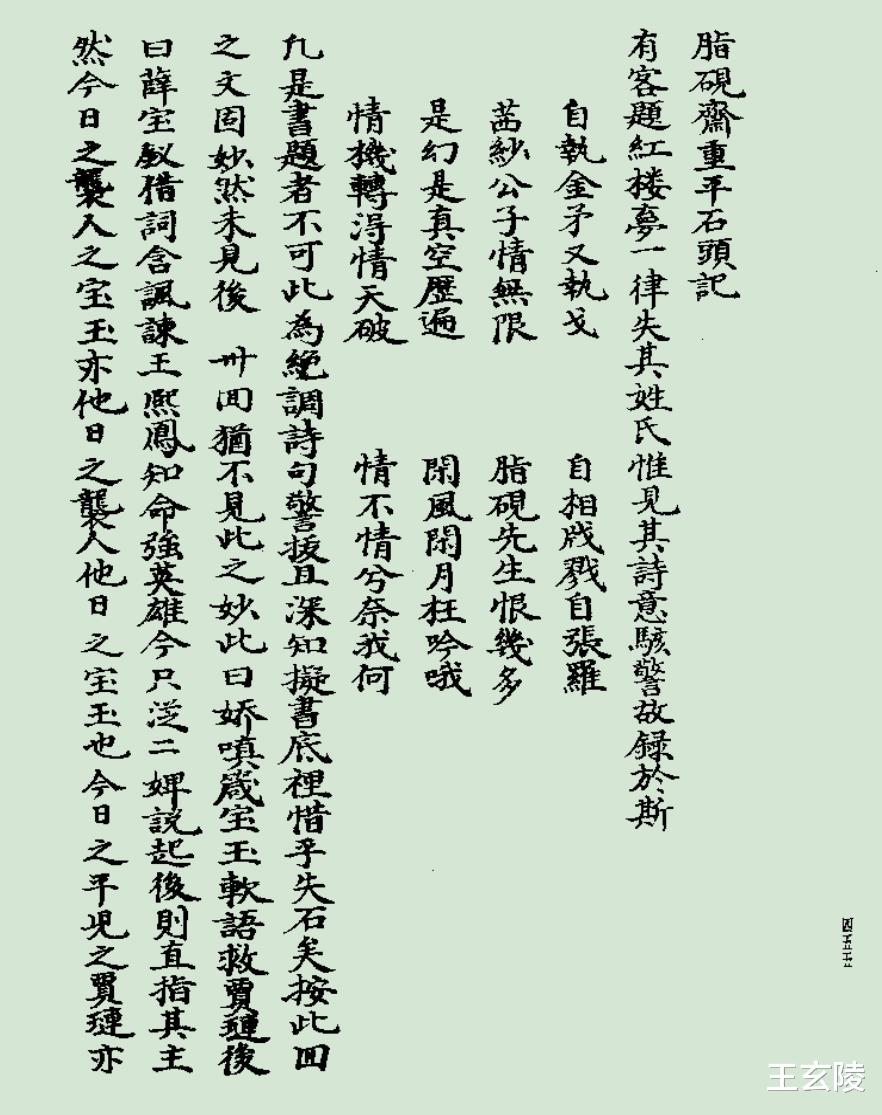 脂硯齋重平石頭記
有客題紅楼夢一律失其姓氏惟見其詩意駭警故録於斯
自執金矛又執戈 自相戕戮自張羅
茜紗公子情無限 脂硯先生恨幾多
是幻是真空歷遍 閑風閑月枉吟哦
情機轉淂情天破 情不情兮奈我何
凢是書題者不可此為絶調詩句警拔且深知擬書底裡惜乎失石矣按此囬
之文固妙然未見後 卅囬猶不見此之妙此曰娇嗔箴宝玉軟語救賈璉後
曰薛宝釵借詞含諷諫王熙鳳知命強英雄今只從二婢説起後則直指其主
然今日之襲人之宝玉亦他日之襲人他日之宝玉也今日之平児之賈璉亦
四五五
王玄陵